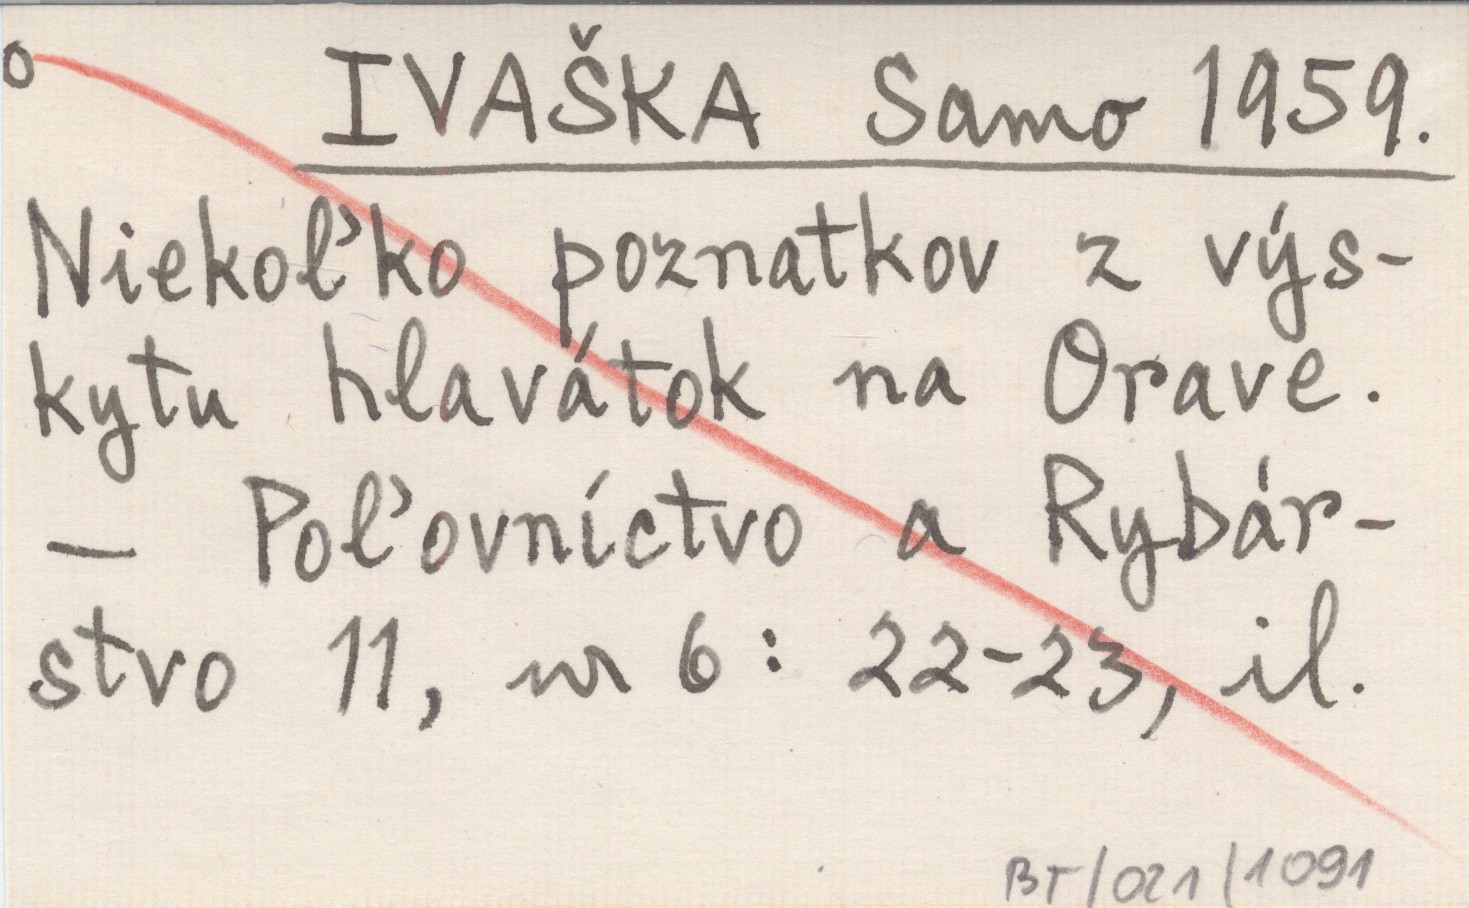 o IVAŠKA Samo 1959.
Niekoľko poznatkov z výs-
kytu hlavátok na Orave.
— Poľovníctvo a Rybár-
stvo 11, nr 6: 22-23, il.
BT/021/1091